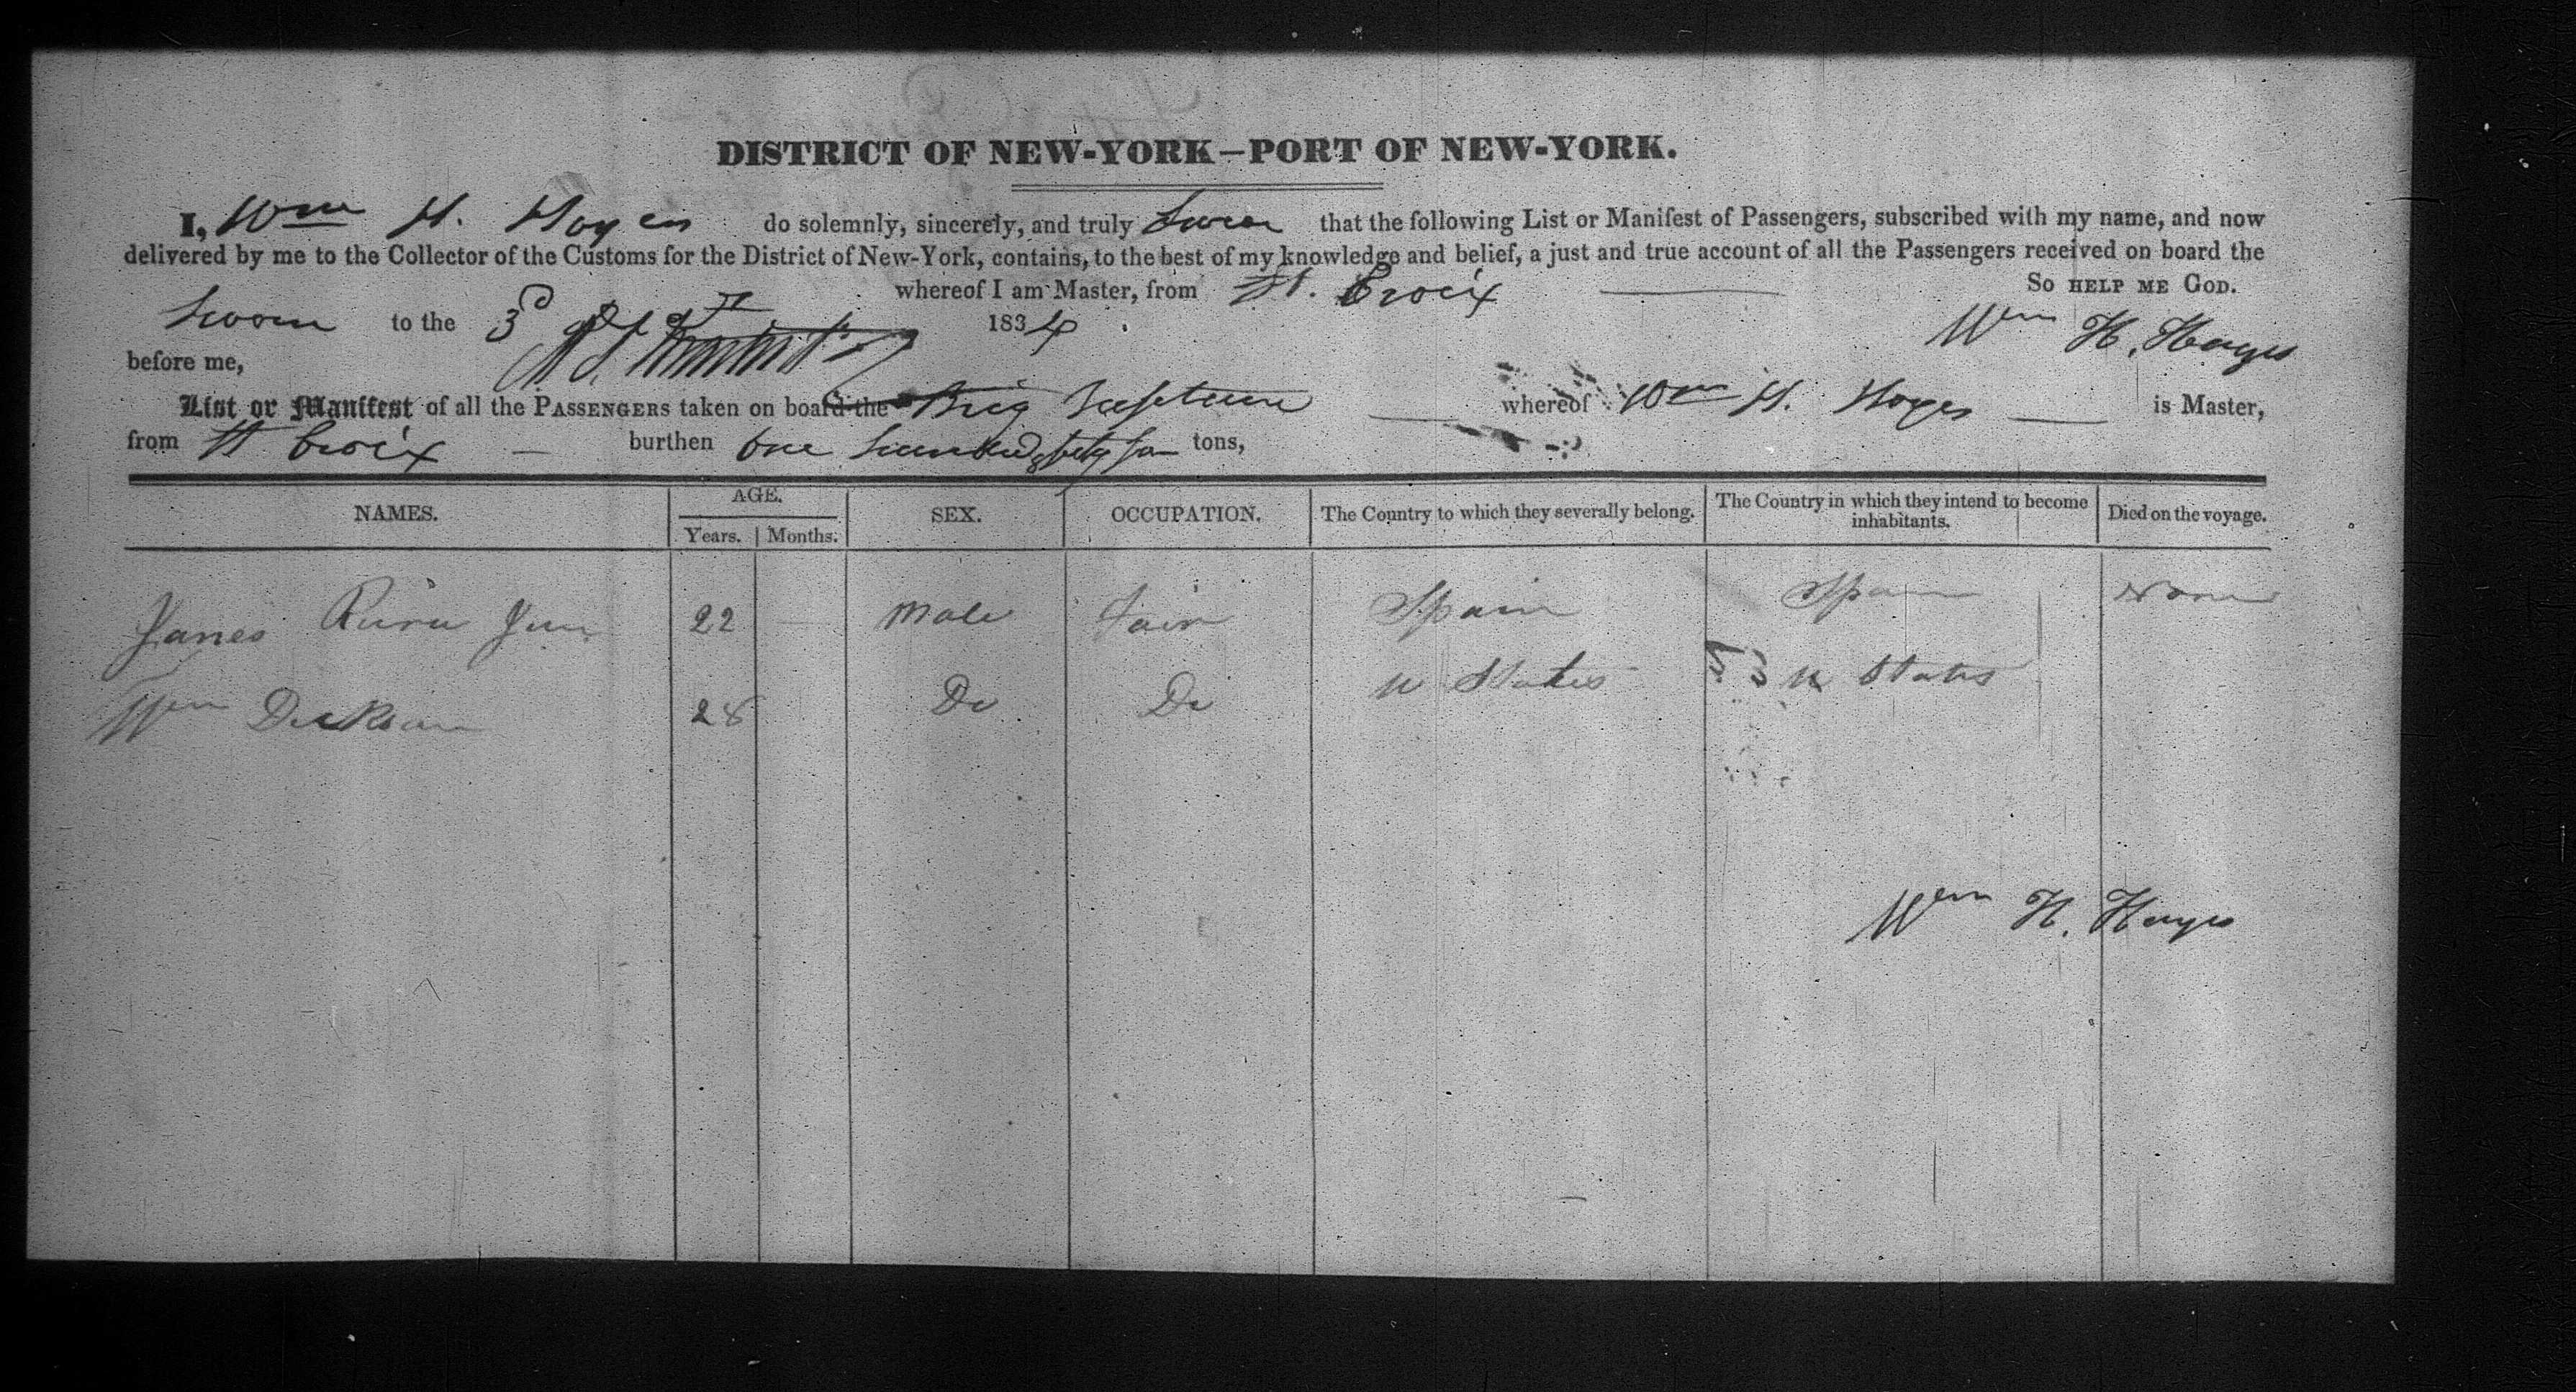 DISTRICT OF NEW-YORK—PORT OF NEW-YORK.
I, Wm H. Hayes do solemnly, sincerely, and truly Swear that the following List or Manifest of Passengers, subscribed with my name, and now
delivered by me to the Collector of the Customs for the District of New-York, contains, to the best of my knowledge and belief, a just and true account of all the Passengers received on board the
whereof I am Master, from St. Croix So HELP ME GOD.
Sworn to the 3d 1834 Wm H. Hayes
before me,
List or Manifest of all the PASSENGERS taken on board the Brig Neptune whereof Wm H. Hayes is Master,
from St Croix burthen One hundred tons,
NAMES. AGE. SEX. OCCUPATION. The Country to which they severally belong. The Country in which they intend to become inhabitants. Died on the voyage.
Years. Months.
James 22 Male Spain Spain None
Wm Dickson 28 Do Do U States U States
Wm H. Hayes